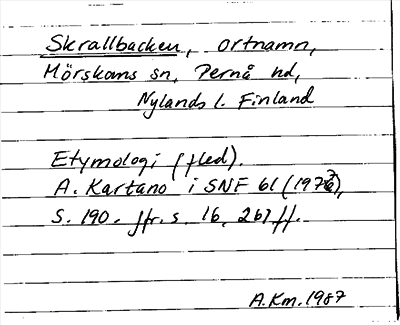 Skrallbacken, ortnamn,
Mörskoms sn, Pernå hd,
Nylands l. Finland
Etymologi (fled).
A. Kartano i SNF 61 (197),
S. 190. Jfr. s. 16, 267 ff.
A.Km. 1987